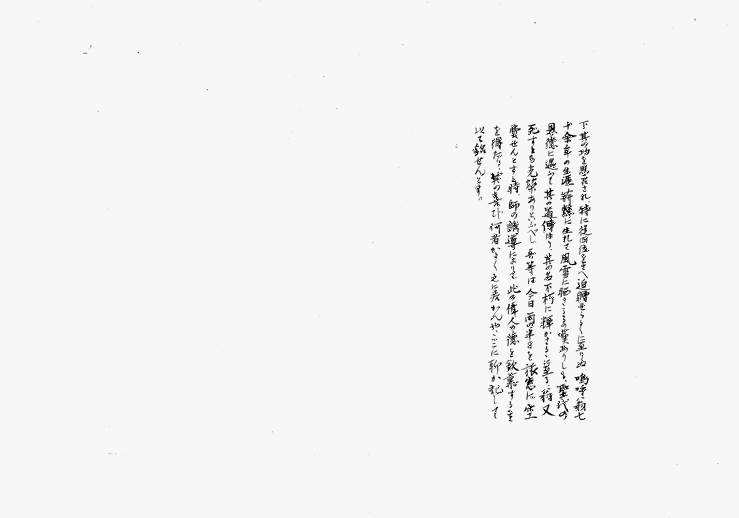 下其の功を思召され、特に従四位をさへ追贈せらるゝに至りぬ 嗚呼 翁七
十余年の生涯 蘇に生れて風雪に晒さるゝの嘆ありしも、聖代の
恩徳に遇ふて 其の道傳はり、其の名不朽に輝かさるゝに至る、翁又
死すとも光榮ありといふべし 吾等は今日 雨の半日を談窓に空
費せんとする時、師の誘導によりて 此の偉人の徳を欽慕するを
を得たり、其の喜び 何者かよく之に若かんや、こゝに聊か記して
以て銘せんとす。